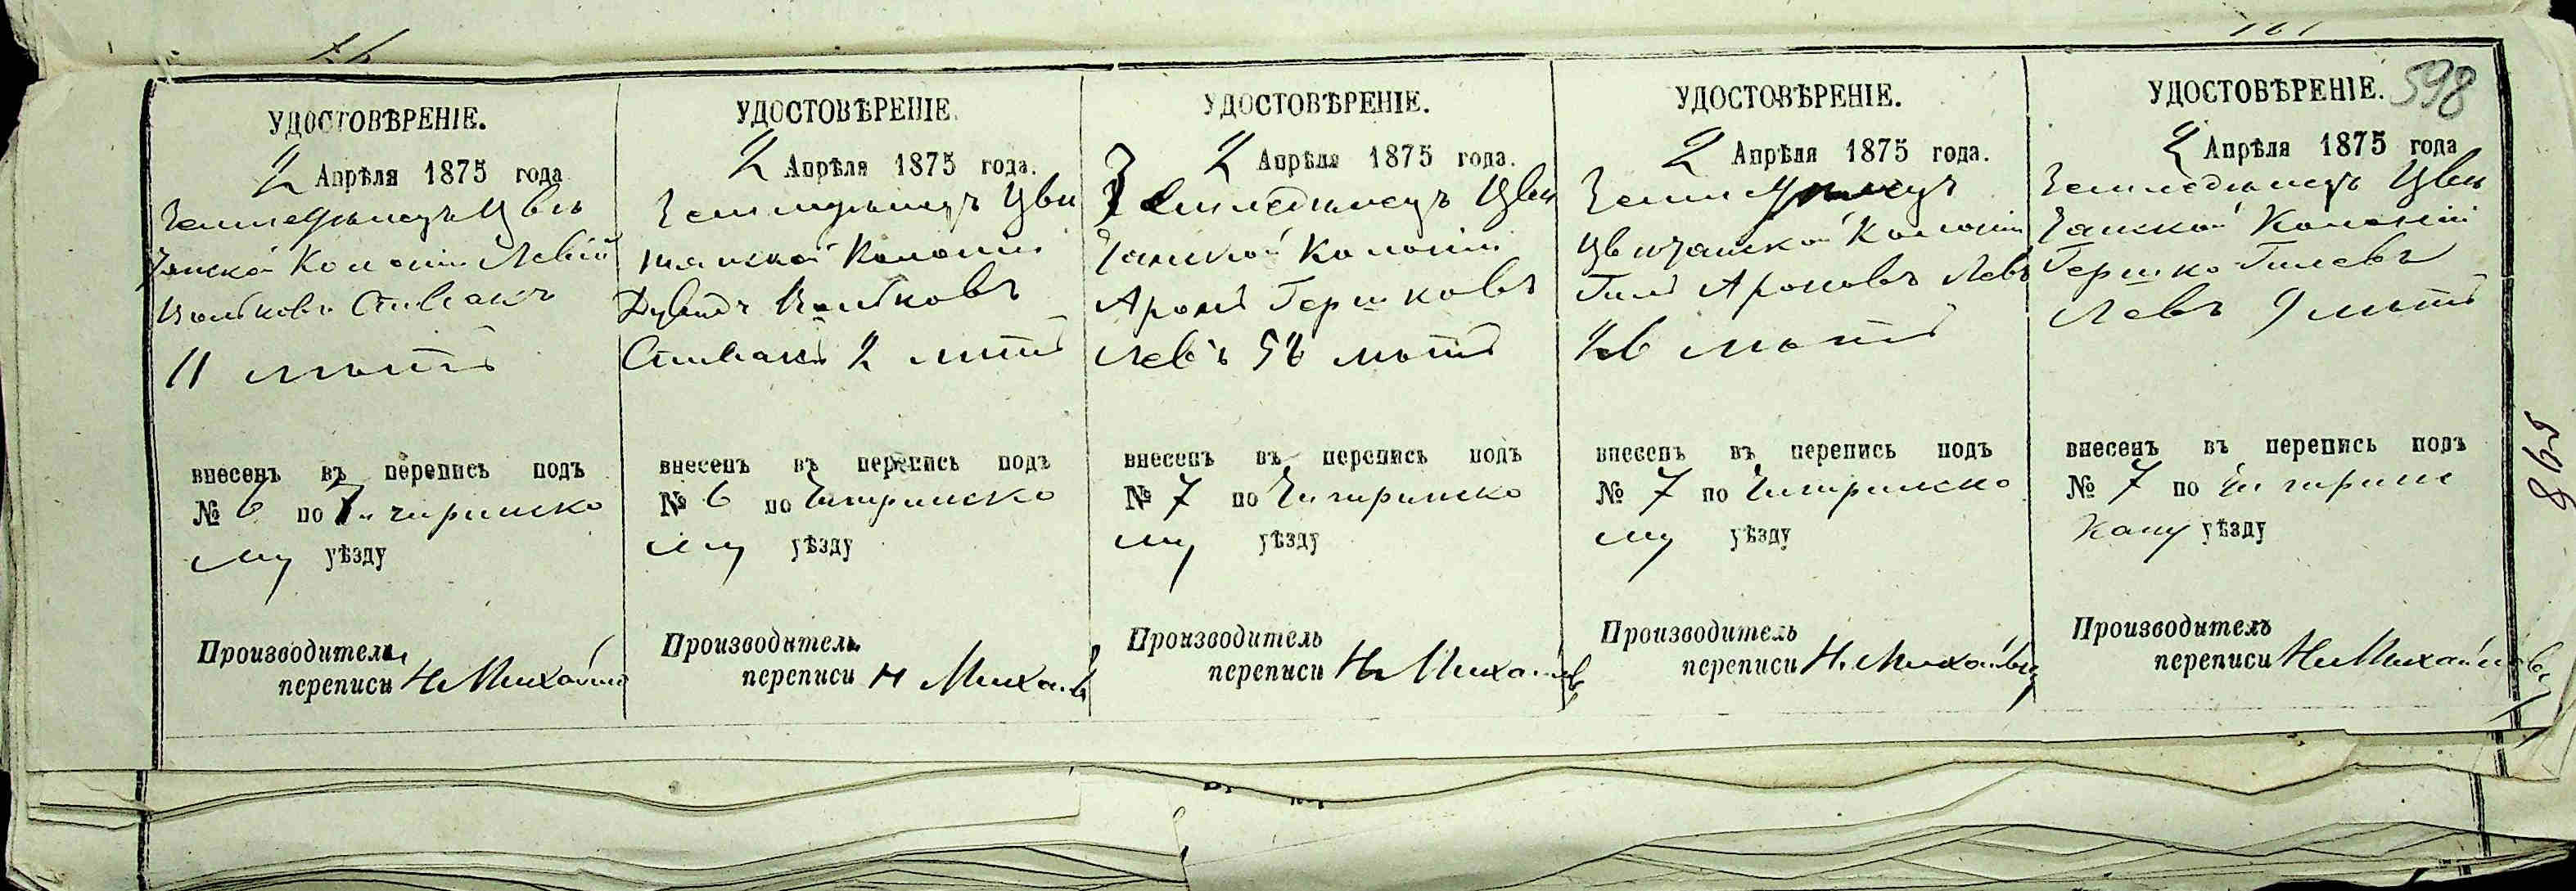 598
УДОСТОВѢРЕНІЕ.
2 Апрѣля 1875 года
Земледѣлецъ Цви
танской Колоніи Лейба
Волковъ Спивакъ
11 лѣтъ
внесенъ въ перепись подъ
№ 6 по Чигиринско
му уѣзду
Производитель
переписи Н. Михайло
УДОСТОВѢРЕНІЕ.
2 Апрѣля 1875 года.
Земледѣлецъ Цви
танской Колоніи
Дувидъ Волковъ
Спивакъ 2 лѣтъ
внесенъ въ перепись подъ
№ 6 по Чигиринско
му уѣзду
Производитель
переписи Н Михай
УДОСТОВѢРЕНІЕ.
2 Апрѣля 1875 года.
Земледѣлецъ Цви
танской Колоніи
Аронъ Гершковъ
Левъ лѣтъ
внесенъ въ перепись подъ
№ 7 по Чигиринско
му уѣзду
Производитель
переписи Н. Михайлов
УДОСТОВѢРЕНІЕ.
2 Апрѣля 1875 года.
Земледѣлецъ
Цвитанской Колоніи
Гиль Ароновъ Левъ
лѣтъ
внесенъ въ перепись подъ
№ 7 по Чигиринско
му уѣзду
Производитель
переписи Н. Михайлов
УДОСТОВѢРЕНІЕ.
2 Апрѣля 1875 года
Земледѣлецъ Цви
танской Колоніи
Гершко Гилевъ
Левъ 9 лѣтъ
внесенъ въ перепись подъ
№ 7 по Чигиринс
кому уѣзду
Производитель
переписи Н. Михайлов
598